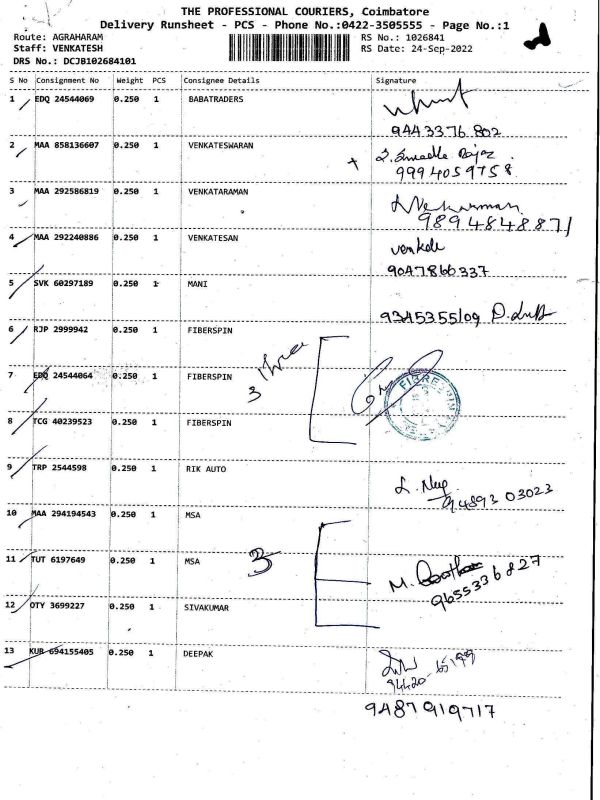 THE PROFESSIONAL COURIERS, Coimbatore
Delivery Runsheet - PCS - Phone No.:0422-3505555 - Page No.:1
Route: AGRAHARAM RS No.: 1026841
Staff: VENKATESH RS Date: 24-Sep-2022
DRS No.: DCJB102684101
S No Consignment No Weight PCS Consignee Details Signature
1 EDQ 24544069 0.250 1 BABATRADERS
9443376 802
2 MAA 858136607 0.250 1 VENKATESWARAN
9994059758
3 MAA 292586819 0.250 1 VENKATARAMAN
9894848871
4 MAA 292240886 0.250 1 VENKATESAN
9047866337
5 SVK 60297189 0.250 1 MANI
9345355109
6 RJP 2999942 0.250 1 FIBERSPIN
3 three
7 EDQ 24544064 0.250 1 FIBERSPIN
8 TCG 40239523 0.250 1 FIBERSPIN
9 TRP 2544598 0.250 1 RIK AUTO
94893 03023
10 MAA 294194543 0.250 1 MSA
11 TUT 6197649 0.250 1 MSA 3
9655336827
12 OTY 3699227 0.250 1 SIVAKUMAR
13 KUR 694155405 0.250 1 DEEPAK
9487919717